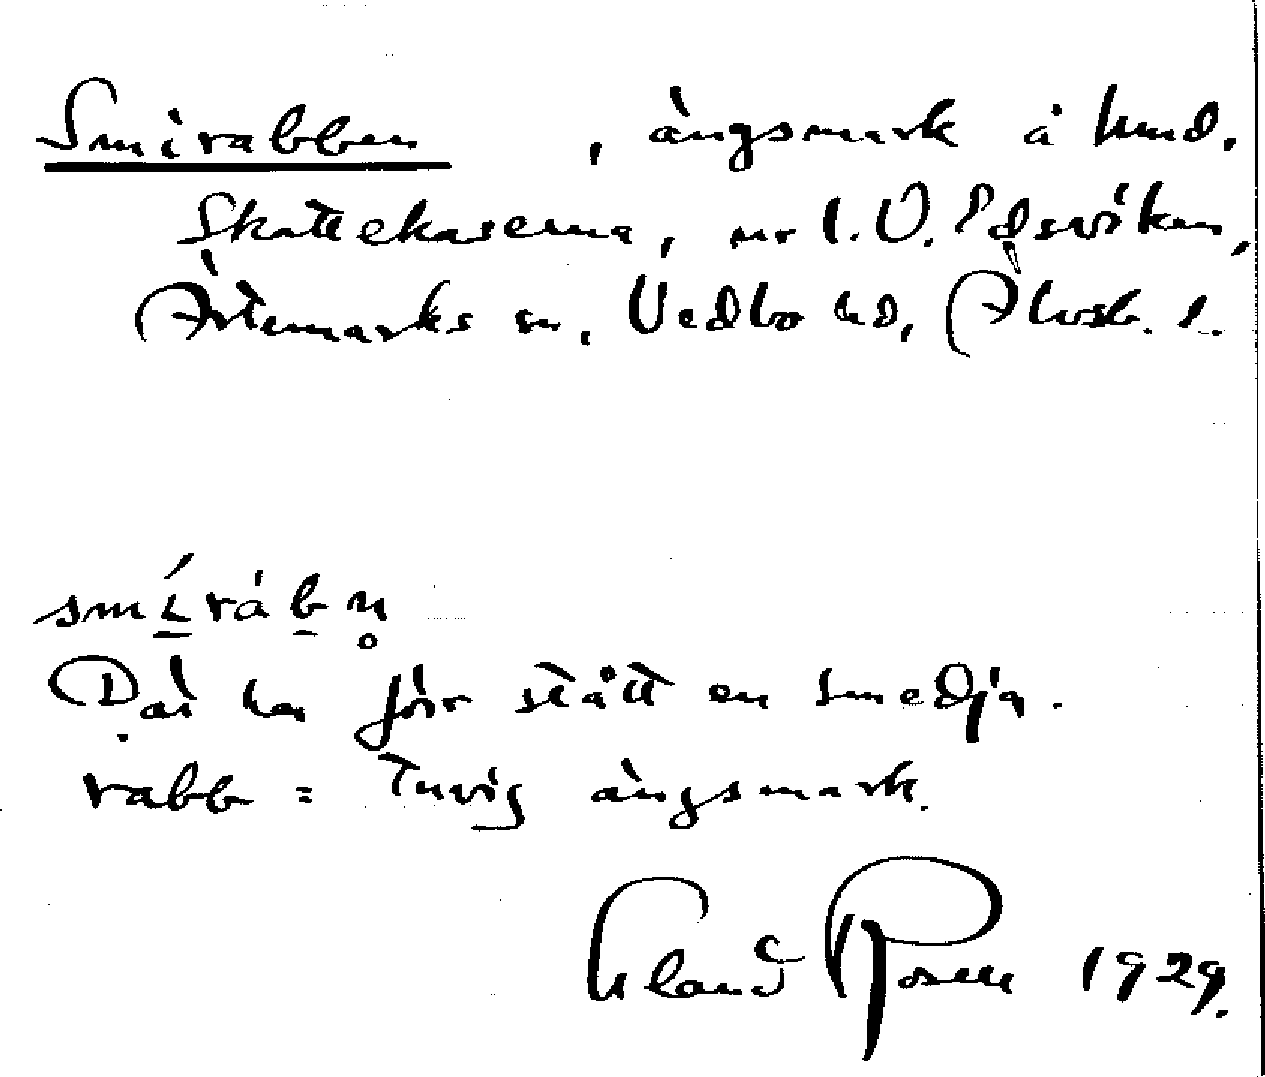 Smirabben , ängsmark å hmd.
Skattekaserna, nr 1. V. Edsviken,
Ärtemarks sn, Vedbo hd, Älvsb. l.
smi̱ráb̠n̥
Där har förr stått en smedja.
rabb = tuvig ängsmark.
Rosen 1929.